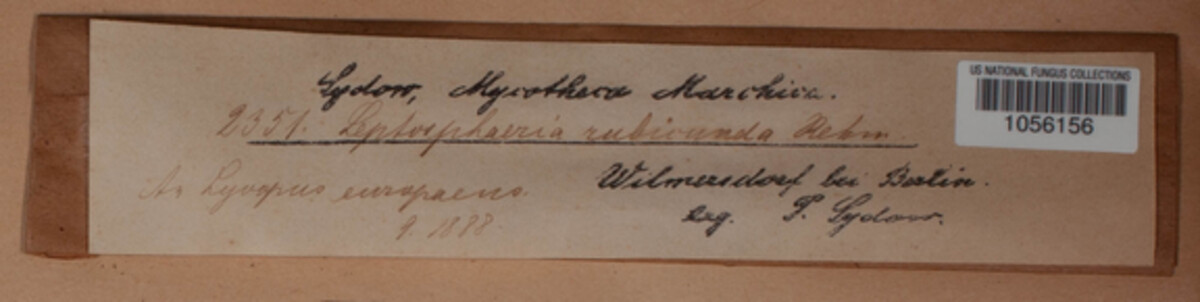 Sydow, Mycotheca Marchica.
2351. Leptosphaeria rubicunda Rehm.
An Lycopus europaeus.
9. 1888
Wilmersdorf bei Berlin.
leg. P. Sydow.
US NATIONAL FUNGUS COLLECTIONS
1056156